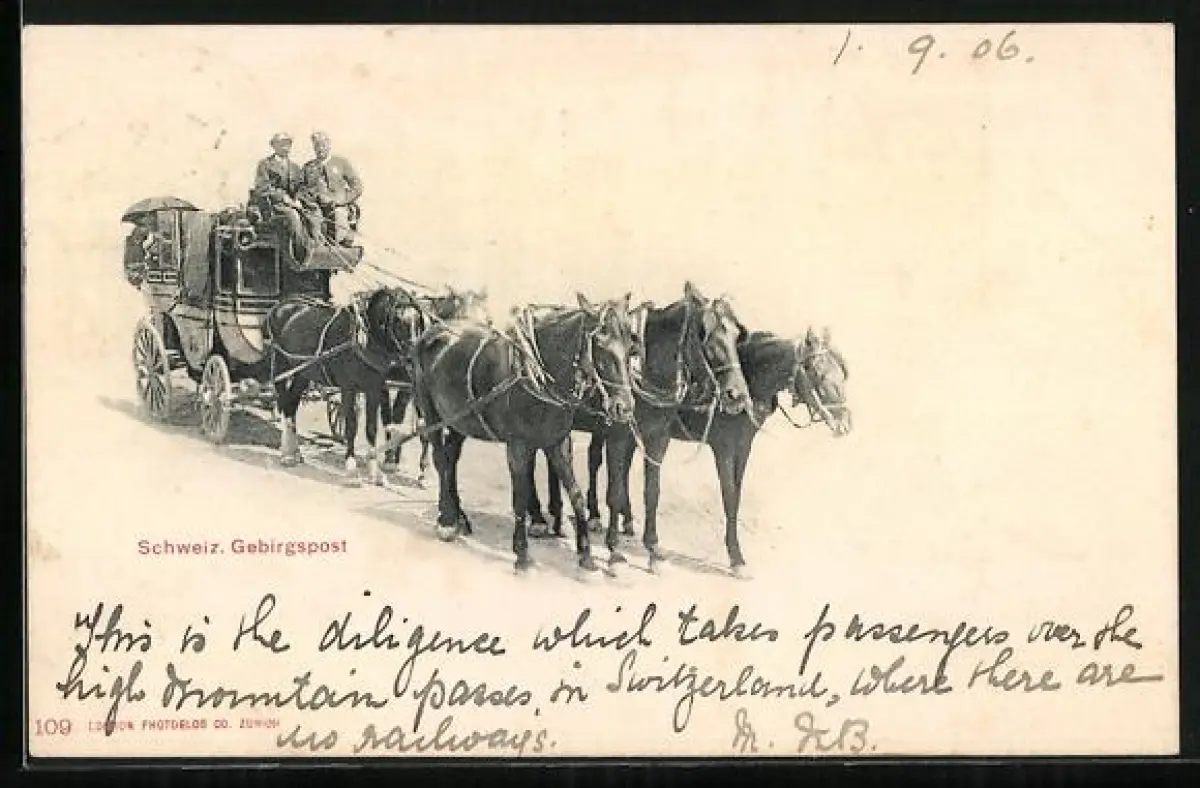 1. 9. 06.
Schweiz. Gebirgspost
"This is the diligence which takes passengers over the
high mountain passes, in Switzerland, where there are
109 PHOTOGLOB CO. ZÜRICH
no railways. M.